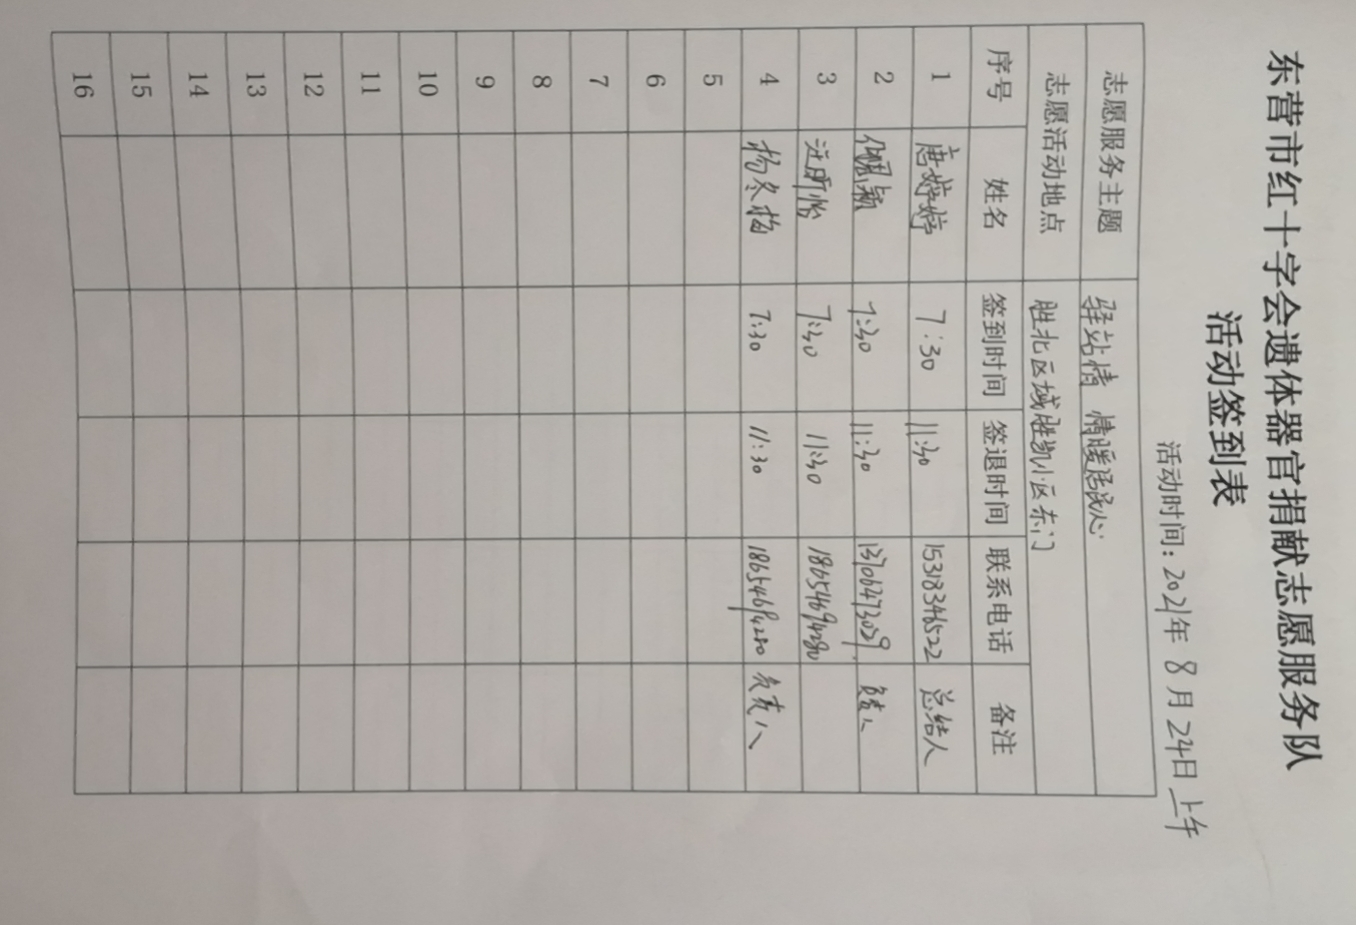 东营市红十字会遗体器官捐献志愿服务队
活动签到表
活动时间：2021年 8月24日 上午
志愿服务主题 驿站情 情暖居民心
志愿活动地点 胜北区域胜凯小区东门
序号 姓名 签到时间 签退时间 联系电话 备注
1 唐婷婷 7:30 11:30 15318346522 总结人
2 颖 7:30 11:30 13706473029 负责人
3 汪昕怡 7:30 11:30 18654694280
4 杨冬梅 7:30 11:30 18654694280 负责人
5
6
7
8
9
10
11
12
13
14
15
16